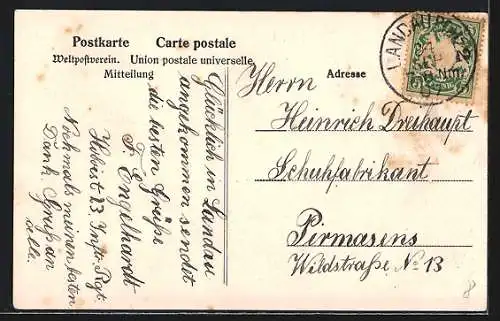 Postkarte Carte postale
Weltpostverein. Union postale universelle
Mitteilung
Adresse
LANDAU
12
Nm.
Herrn
Heinrich Dreihaupt
Schuhfabrikant
Pirmasens
Wildstraße No 13
Glücklich in Landau
angekommen sendet
die besten Grüße
F. Engelhardt
23. Inftr. Rgt.
Nochmals meinen besten
Dank. Gruß an
alle.
8